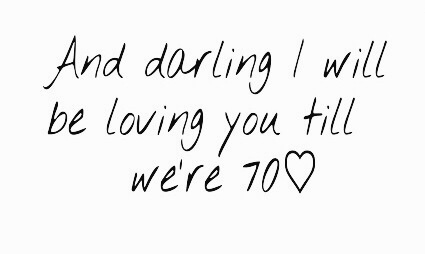 And darling I will
be loving you till
we're 70♡